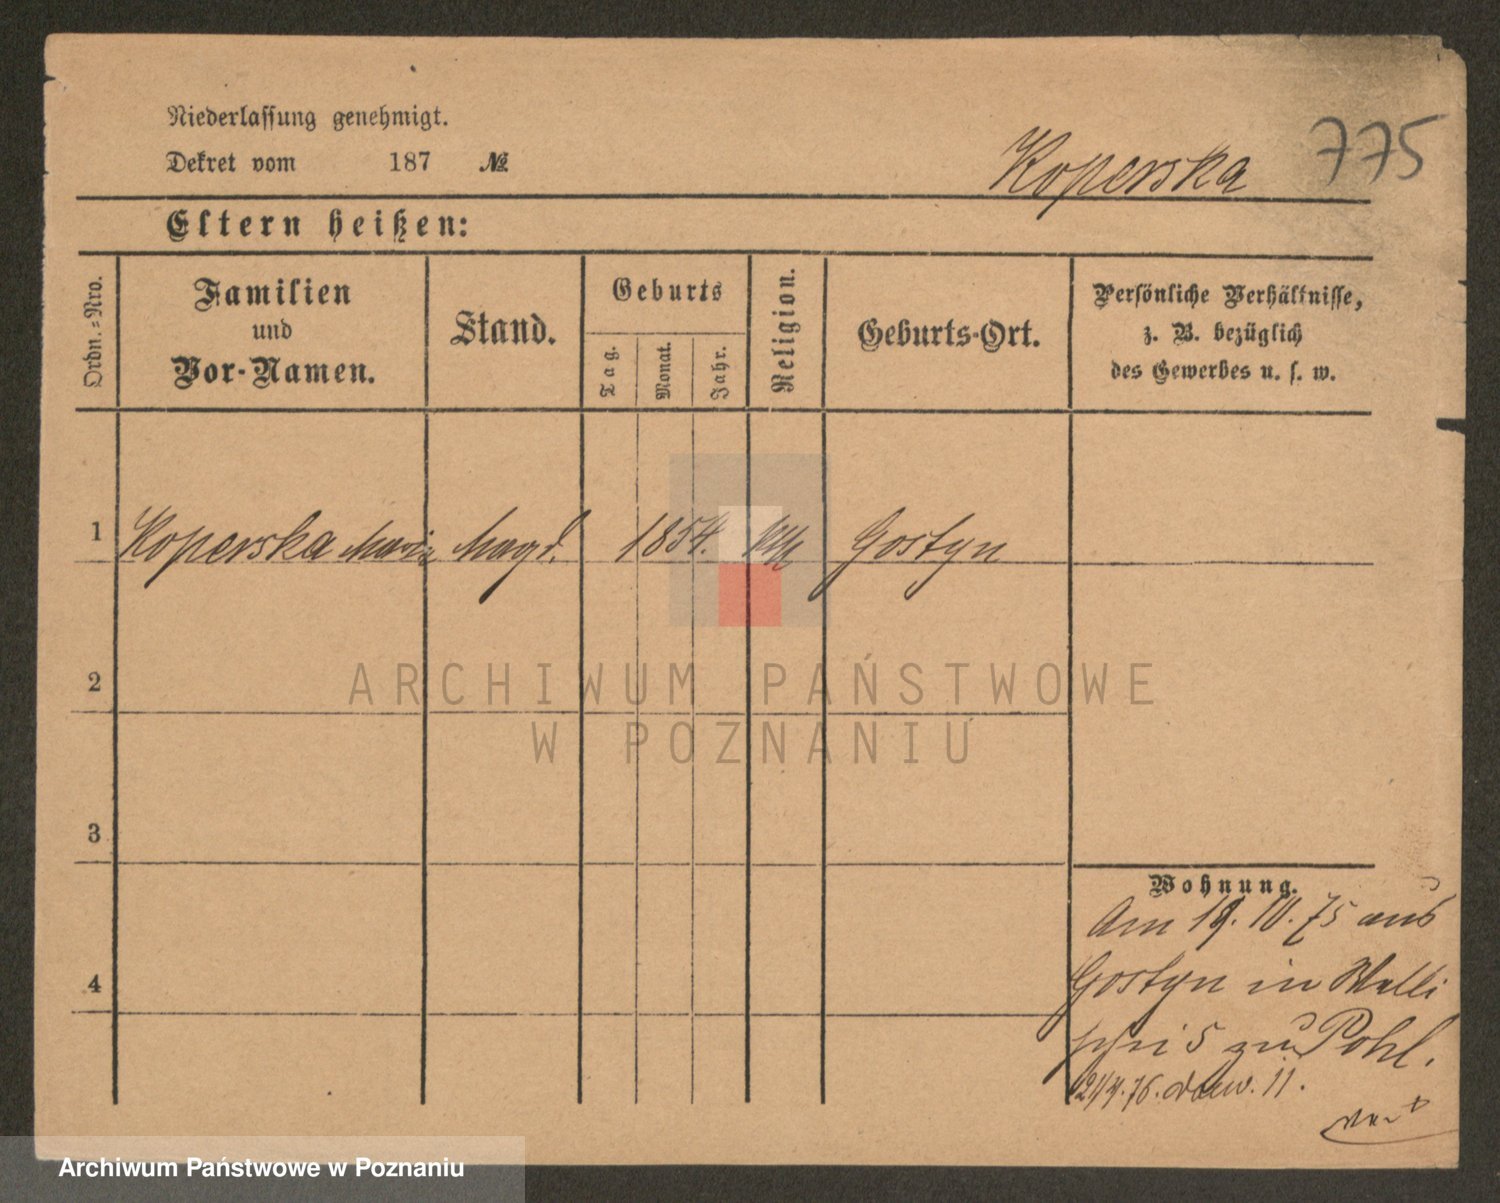 Niederlassung genehmigt.
Dekret vom 187 №
Koperska 775
Eltern heißen:
Ordn.=Nro.
Familien
und
Vor-Namen.
Stand.
Geburts
Tag.
Monat.
Jahr.
Religion.
Geburts-Ort.
Persönliche Verhältnisse,
z. B. bezüglich
des Gewerbes u. s. w.
1 Koperska Maria Magd. 1854. kth Gostyn
2
3
4
Wohnung.
Am 19. 10. 75 aus
Gostyn in Walli
schei 5 zu Pohl.
76. 11.
ARCHIWUM PAŃSTWOWE
W POZNANIU
Archiwum Państwowe w Poznaniu